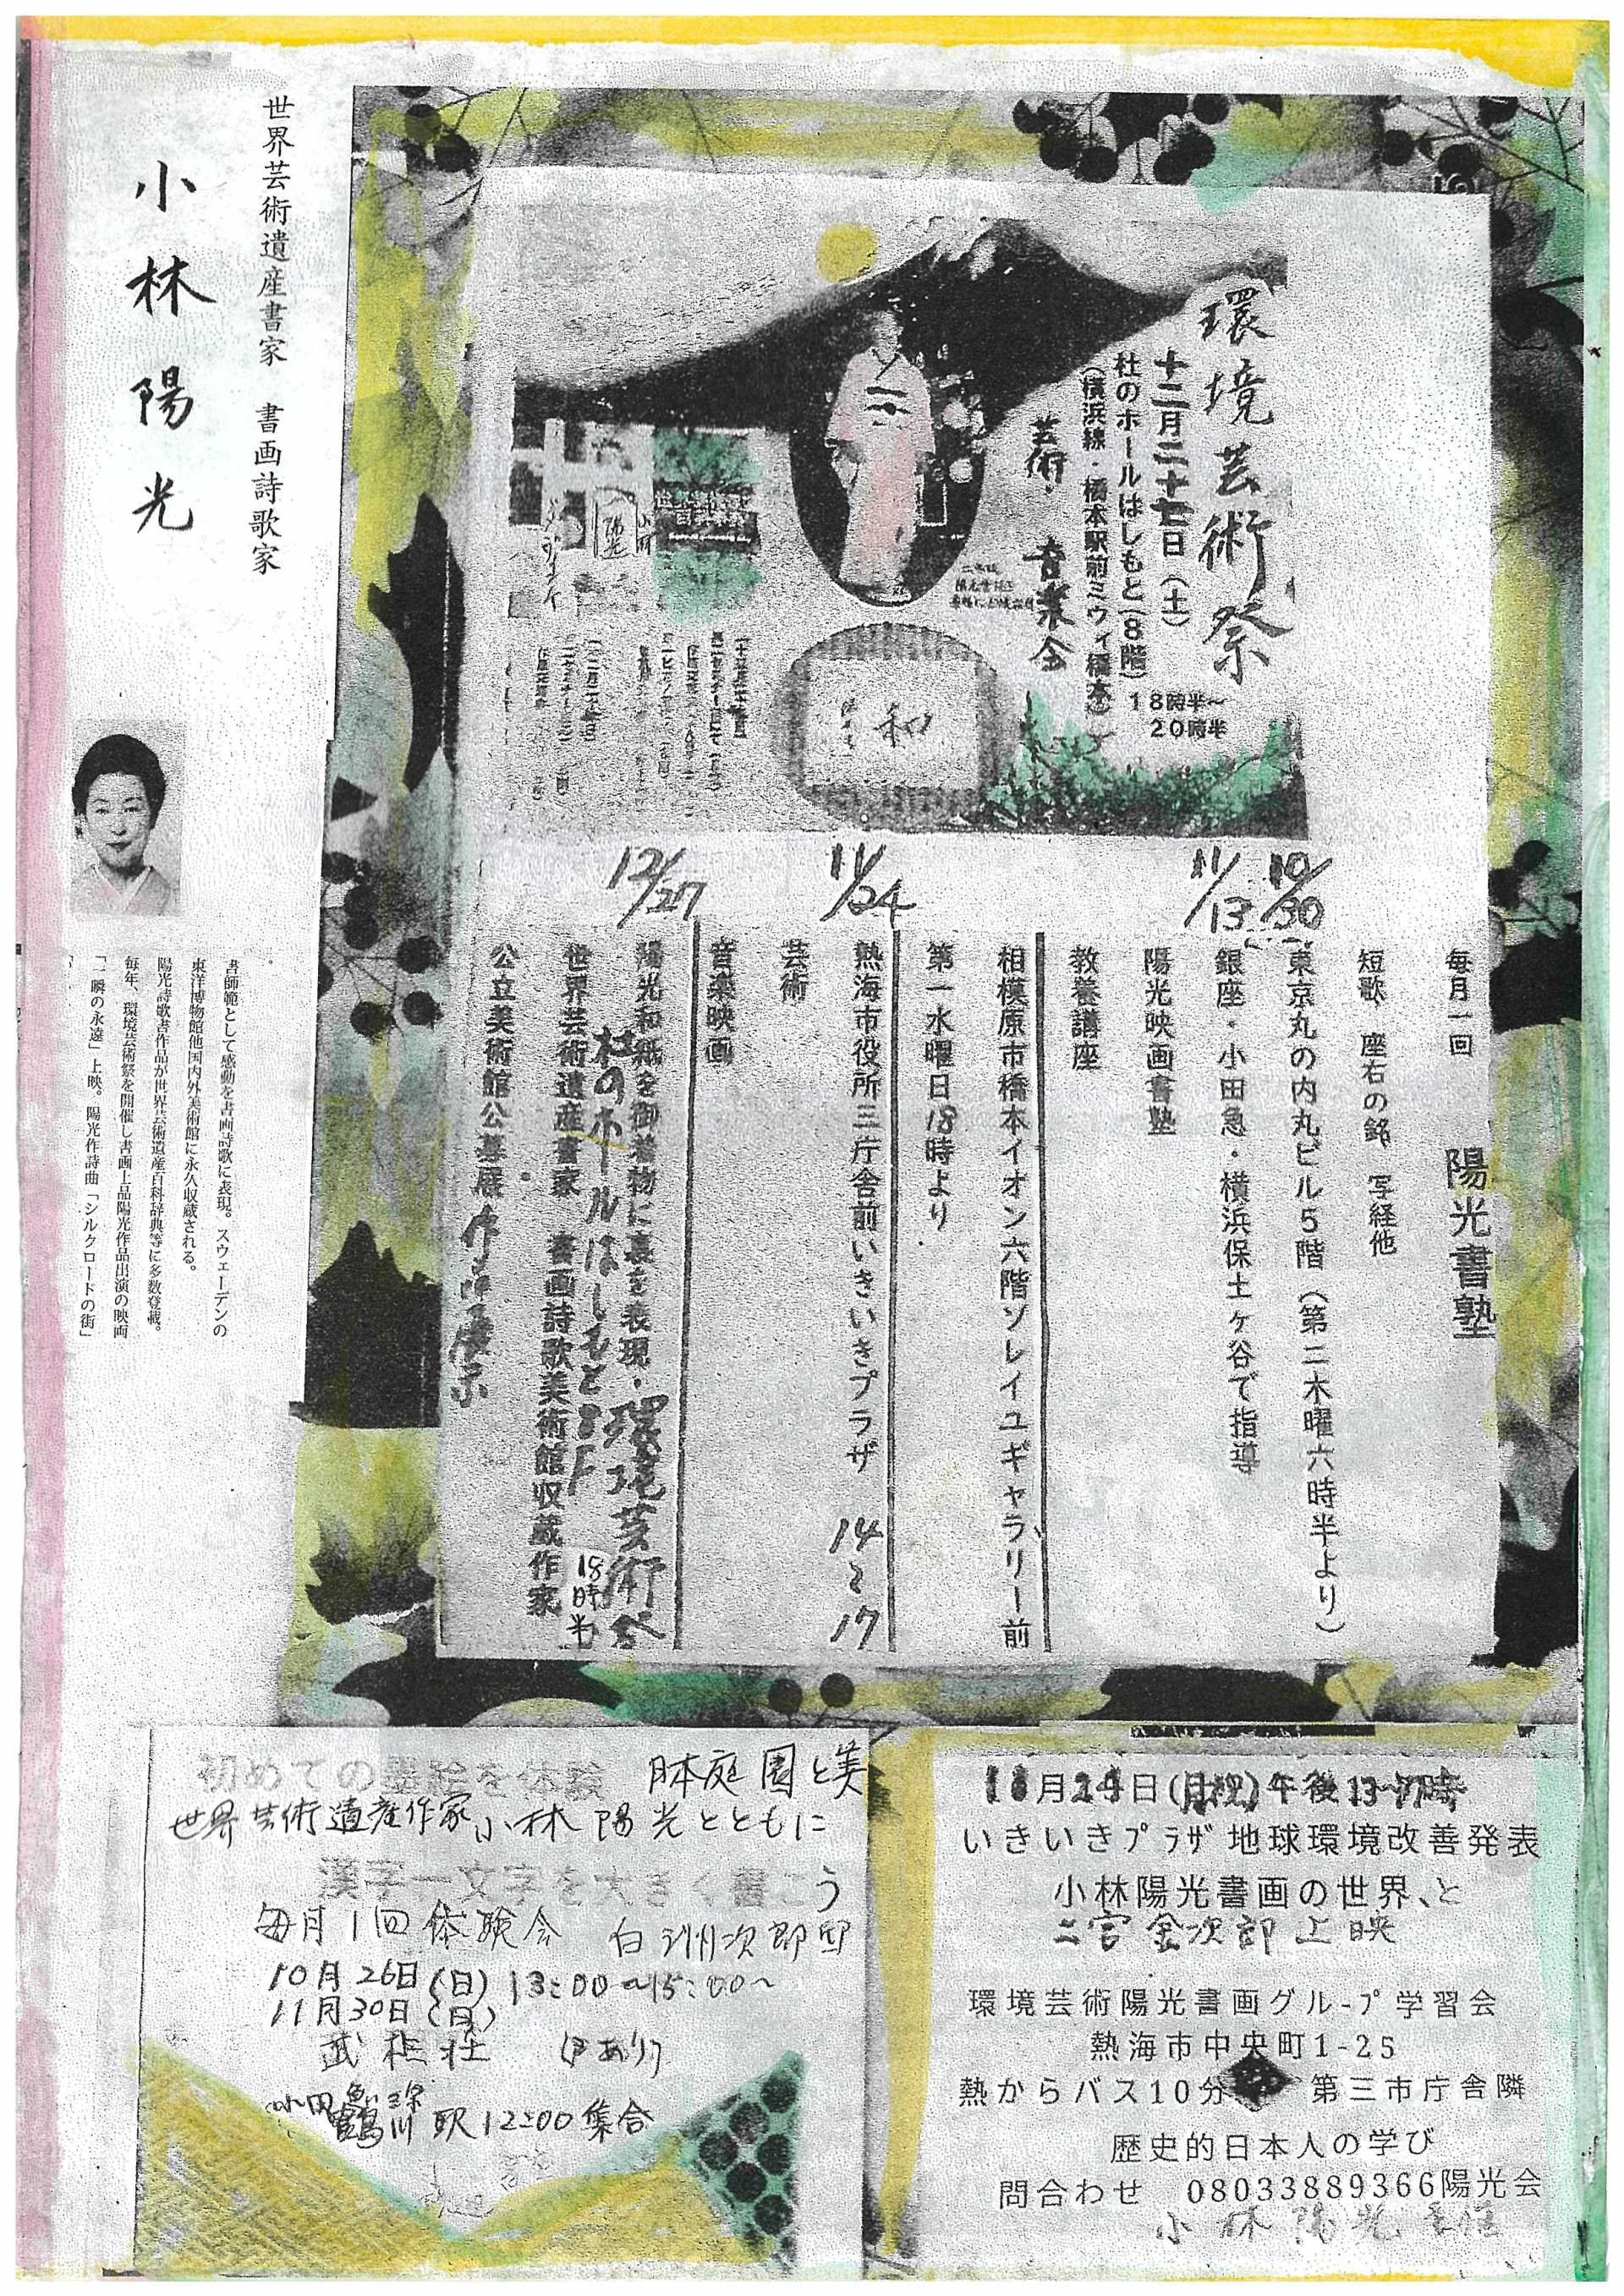 環境芸術祭
十二月二十七日(土)
18時半~
20時半
杜のホールはしもと(8階)
(横浜線・橋本駅前ミウィ橋本)
芸術・音楽会
和
世界芸術遺産書家 書画詩歌家
小林陽光
書師範として感動を書画詩歌に表現。スウェーデンの
東洋博物館他国内外美術館に永久収蔵される。
陽光詩歌書作品が世界芸術遺産百科辞典等に多数登載。
毎年、環境芸術祭を開催し書画上品陽光作品出演の映画
「一瞬の永遠」上映。陽光作詩曲「シルクロードの街」
毎月一回 陽光書塾
短歌 座右の銘 写経他
10/30
東京丸の内丸ビル5階(第二木曜六時半より)
11/13
銀座・小田急・横浜保土ヶ谷で指導
陽光映画書塾
教養講座
相模原市橋本イオン六階ソレイユギャラリー前
第一水曜日18時より
11/24
熱海市役所三庁舎前いきいきプラザ 14~17
芸術
音楽映画
12/27
陽光和紙を御着物に裏を表現・環境芸術祭
杜のホールはしもと8F 18時半
世界芸術遺産書家 書画詩歌美術館収蔵作家
公立美術館公募展 作品展示
初めての墨絵を体験 日本庭園と美
世界芸術遺産作家小林陽光とともに
漢字一文字を大きく書こう
毎月1回体験会 白洲次郎邸
10月26日(日) 13:00~15:00~
11月30日(日)
武相荘
小田急線
鶴川駅12:00集合
11月24日(月祝)午後13~17時
いきいきプラザ地球環境改善発表
小林陽光書画の世界、と
二宮金次郎上映
環境芸術陽光書画グループ学習会
熱海市中央町1-25
熱からバス10分 第三市庁舎隣
歴史的日本人の学び
問合わせ 08033889366陽光会
小林陽光